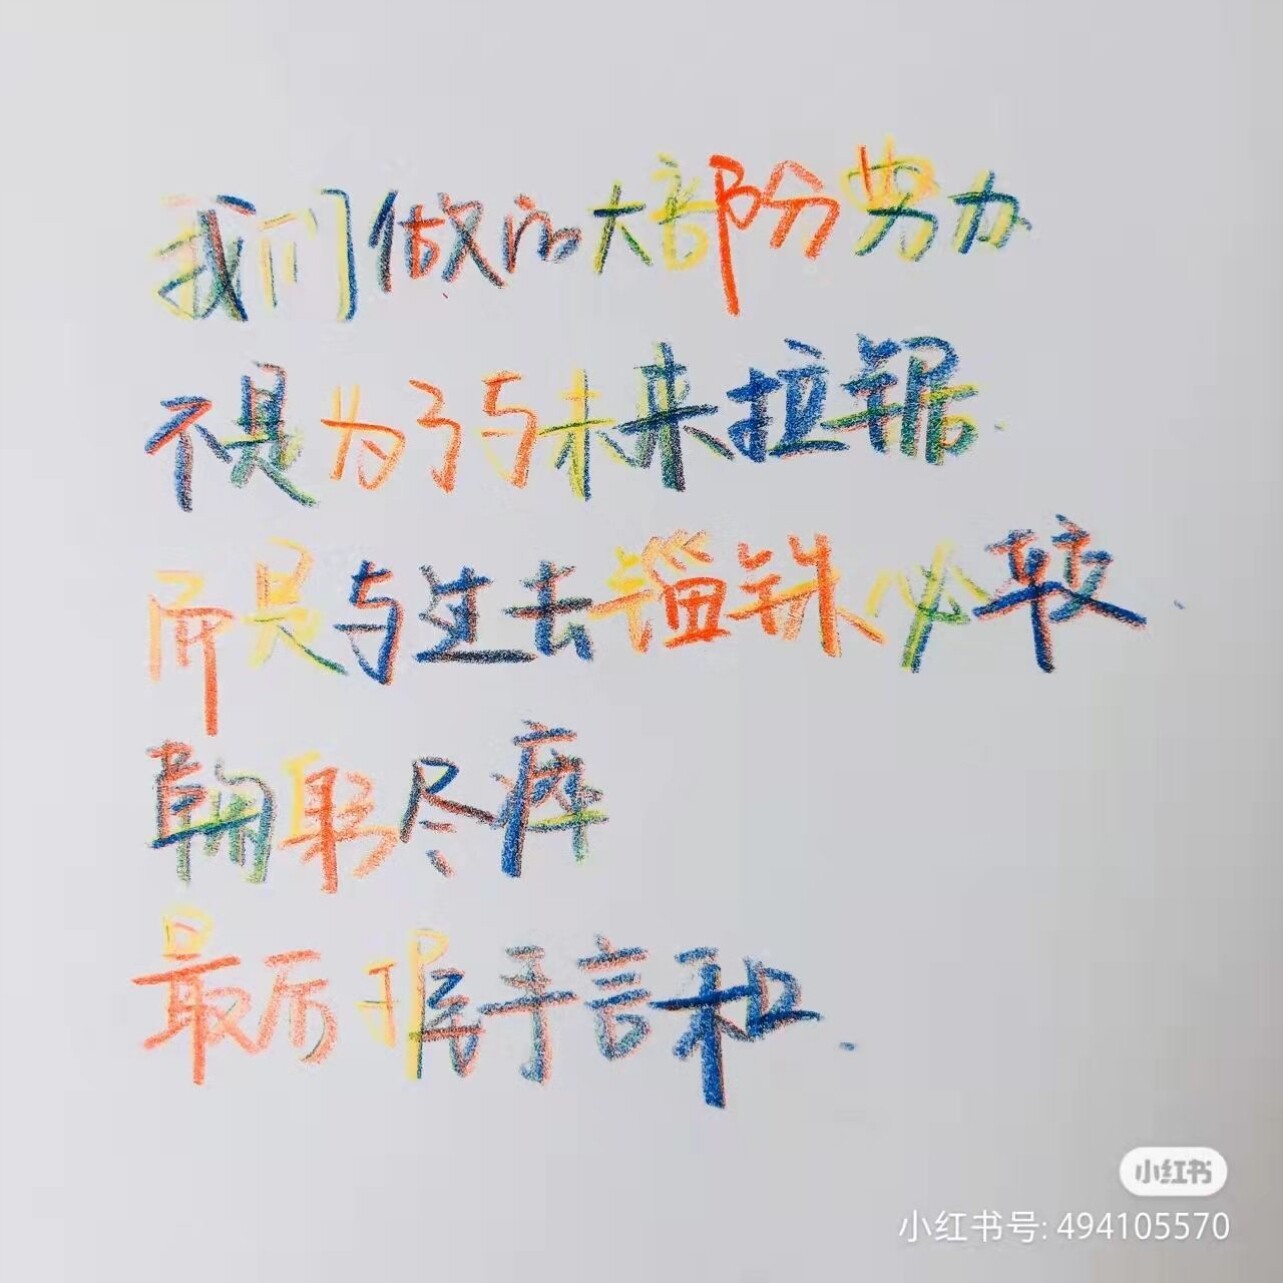 我们做的大部份努力
不是为了与未来拉锯.
而是与过去锱铢必较.
鞠躬尽瘁
最后握手言和.
小红书
小红书号: 494105570